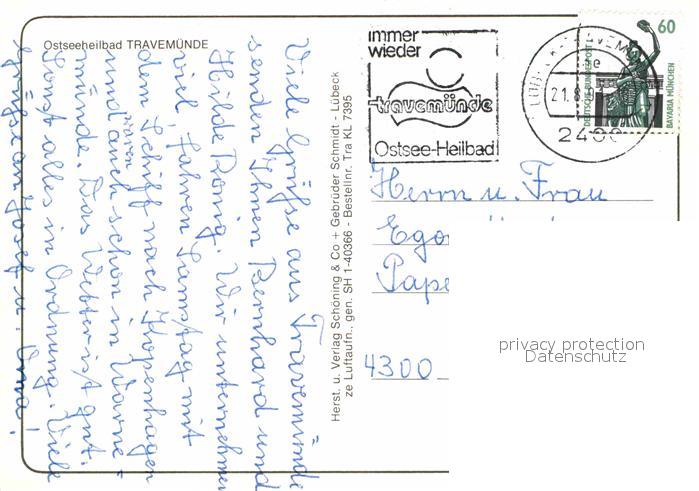 Ostseeheilbad TRAVEMÜNDE
Viele Grüße aus Travemünde
senden Ihnen Bernhard und
Hilde König. Wir unternehmen
viel, fahren Samstag mit
dem Schiff nach Kopenhagen
und waren auch schon in Warne-
münde. Das Wetter ist gut.
Sonst alles in Ordnung. Viele
Grüße an Josef u. Oma!
Herst. u. Verlag Schöning & Co + Gebrüder Schmidt - Lübeck
ze Luftaufn., gen. SH 1-40366 - Bestellnr. Tra KL 7395
immer
wieder
travemünde
Ostsee-Heilbad
21.8.
2400
60
DEUTSCHE BUNDESPOST
BAVARIA MÜNCHEN
Herrn u. Frau
Ego
Pape
4300
privacy protection
Datenschutz